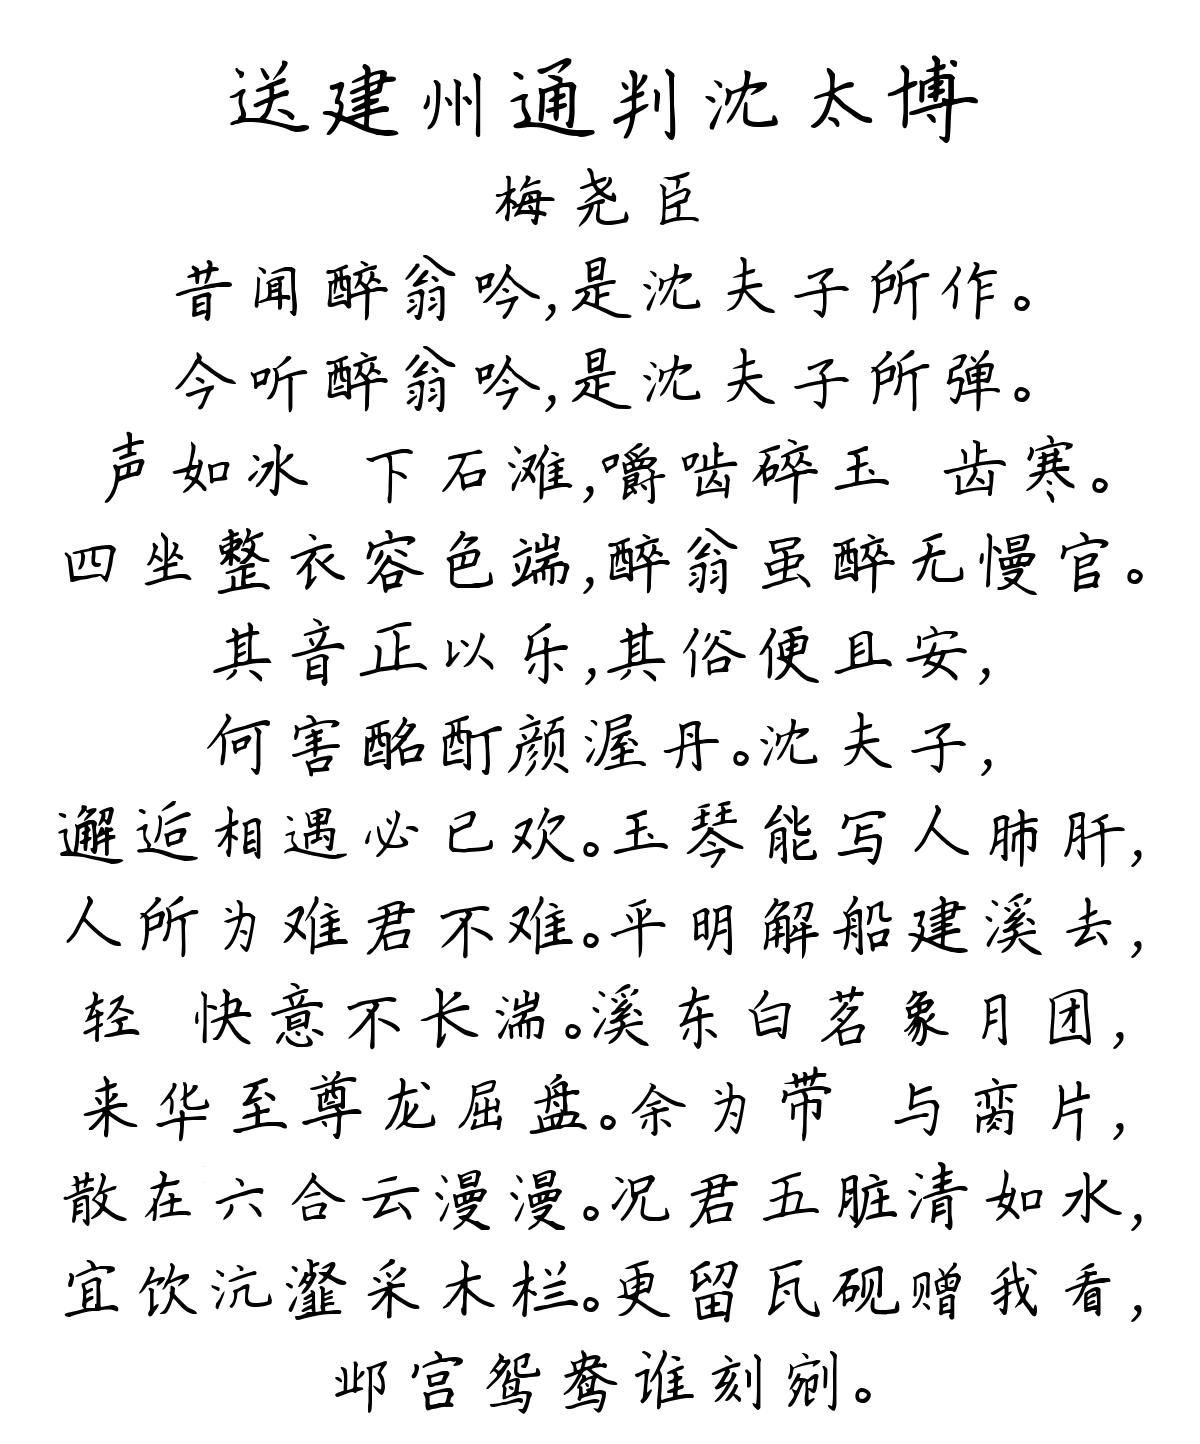 送建州通判沈太博
梅尧臣
昔闻醉翁吟,是沈夫子所作。
今听醉翁吟,是沈夫子所弹。
声如冰 下石滩,嚼啮碎玉 齿寒。
四坐整衣容色端,醉翁虽醉无慢官。
其音正以乐,其俗便且安,
何害酩酊颜渥丹。沈夫子,
邂逅相遇必已欢。玉琴能写人肺肝,
人所为难君不难。平明解船建溪去,
轻 快意不长湍。溪东白茗象月团,
来华至尊龙屈盘。余为带 与脔片,
散在六合云漫漫。况君五脏清如水,
宜饮沆瀣采木栏。更留瓦砚赠我看,
邺宫鸳鸯谁刻剜。